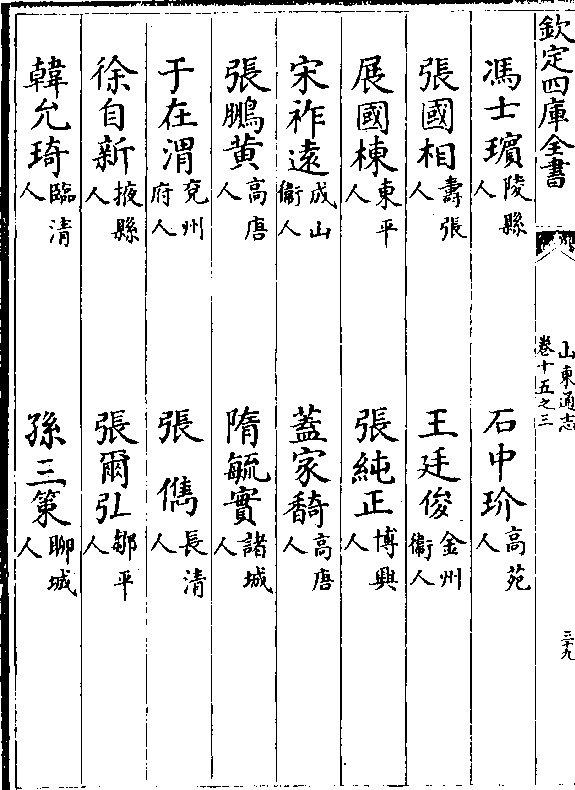 欽定四庫全書
山東通志
卷十五之三
三十九
馮士璸陵縣人
石中玠高苑人
張國相壽張人
王廷俊金州衛人
展國棟東平人
張純正博興人
宋祚遠成山衛人
蓋家騎高唐人
張鵬黄高唐人
隋毓實諸城人
于在渭兖州府人
張儁長清人
徐自新掖縣人
張爾弘鄒平人
韓允琦臨清人
孫三策聊城人